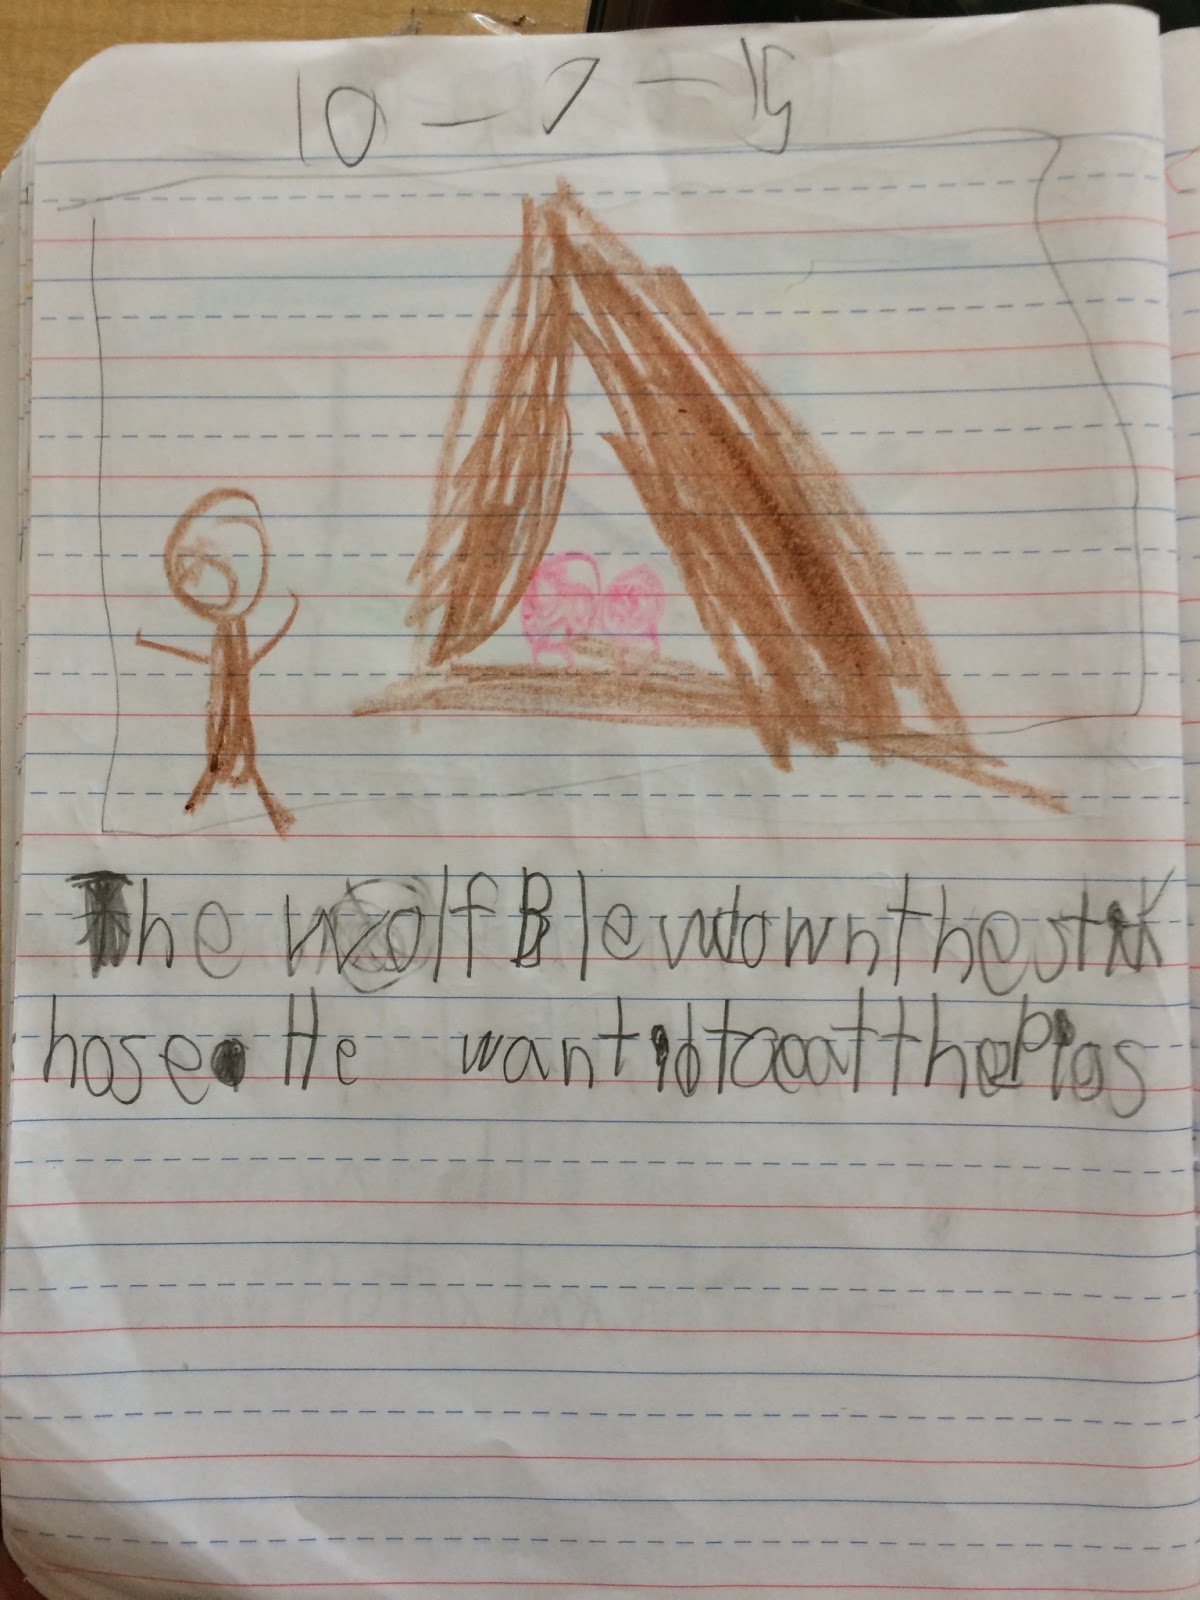 10-7-15
The wolf Blew down the stik
hose. He wantid to eat the Pigs